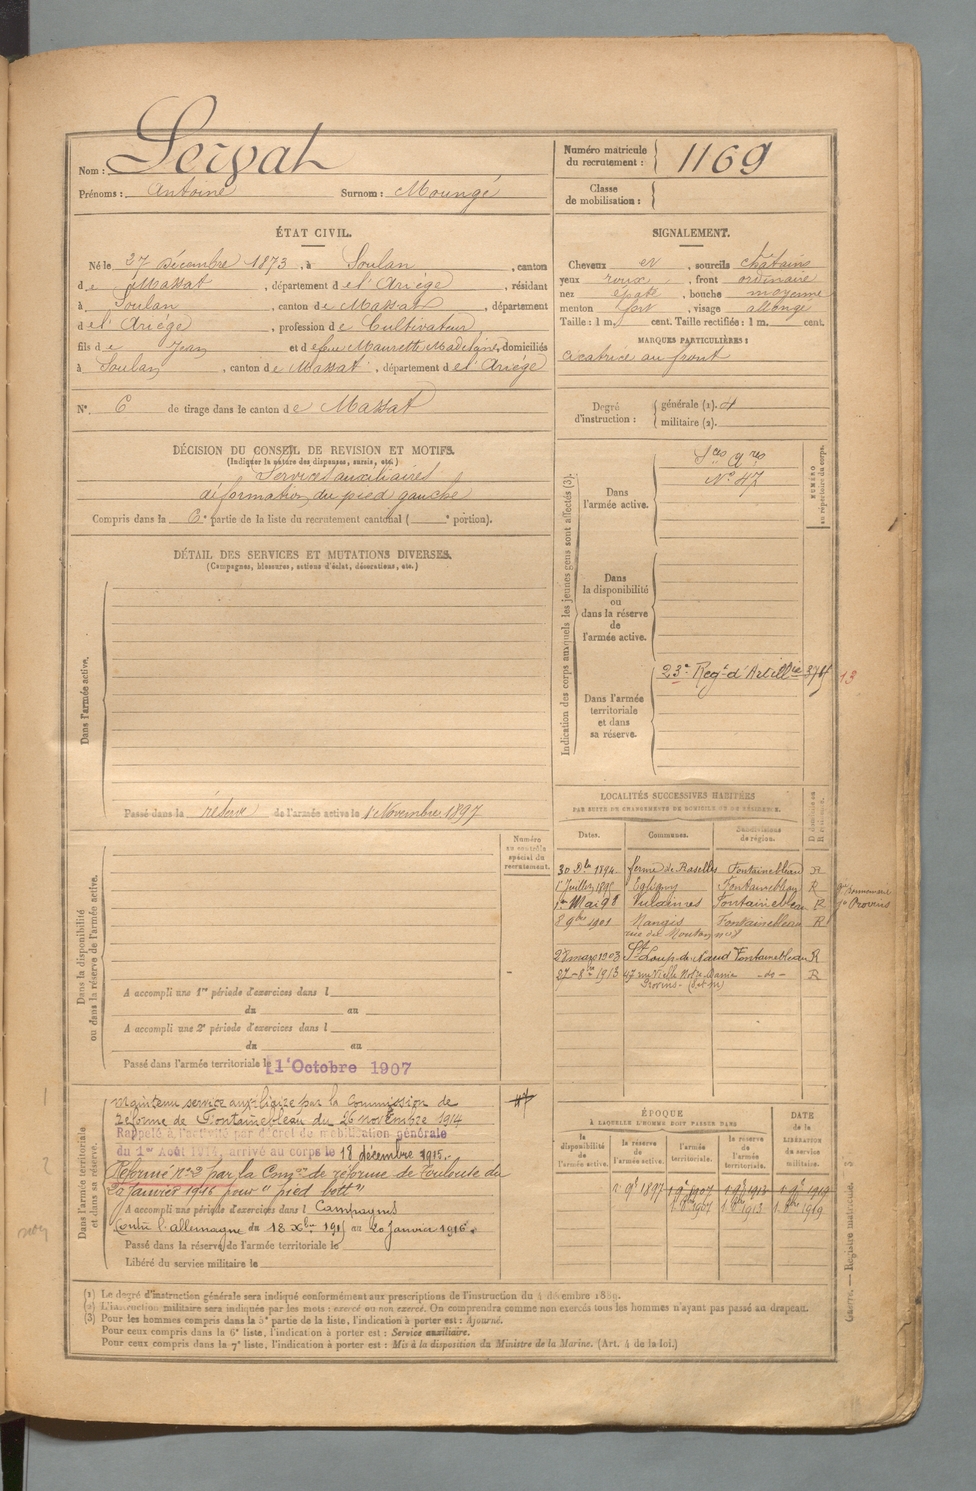 Nom : Servat
Prénoms : Antoine Surnom : Moungé
Numéro matricule du recrutement : 1169
Classe de mobilisation :
ÉTAT CIVIL.
Né le 27 Décembre 1873, à Soulan, canton
de Massat, département de l'Ariège, résidant
à Soulan, canton de Massat, département
de l'Ariège, profession de Cultivateur,
fils de Jean et de feue Maurette Madeleine, domiciliés
à Soulan, canton de Massat, département de l'Ariège
N° 6 de tirage dans le canton de Massat
SIGNALEMENT.
Cheveux et, sourcils châtains
yeux roux, front ordinaire
nez épaté, bouche moyenne
menton fort, visage allongé
Taille : 1 m. cent. Taille rectifiée : 1 m. cent.
MARQUES PARTICULIÈRES :
cicatrice au front
Degré d'instruction : générale (1). militaire (2).
DÉCISION DU CONSEIL DE REVISION ET MOTIFS.
(Indiquer la nature des dispenses, sursis, etc.)
Services auxiliaires
déformation du pied gauche
Compris dans la 6e partie de la liste du recrutement cantonal ( e portion).
DÉTAIL DES SERVICES ET MUTATIONS DIVERSES.
(Campagnes, blessures, actions d'éclat, décorations, etc.)
Dans l'armée active.
Passé dans la réserve de l'armée active le 1 Novembre 1897
Indication des corps auxquels les jeunes gens sont affectés (3).
NUMÉRO au répertoire du corps.
Dans l'armée active.
N° 47
Dans la disponibilité ou dans la réserve de l'armée active.
Dans l'armée territoriale et dans sa réserve.
23e Régt d'Artillie
13
LOCALITÉS SUCCESSIVES HABITÉES
PAR SUITE DE CHANGEMENTS DE DOMICILE OU DE RÉSIDENCE.
Dates. Communes. Subdivisions de région.
30 Dbre 1894 ferme de Raselles Fontainebleau R
1 Juillet 1895 Égligny Fontainebleau R
1er Mai 98 Vulaines Fontainebleau R
8 9bre 1901 Nangis Fontainebleau R
rue du Mouton n°8
28 mars 1903 St Loup de Naud Fontainebleau R
27-8bre 1913 47 rue Vielle Notre Dame -do- R
Provins (S et M)
Dans la disponibilité ou dans la réserve de l'armée active.
Numéro au contrôle spécial du recrutement.
A accompli une 1re période d'exercices dans l
du au
A accompli une 2e période d'exercices dans l
du au
Passé dans l'armée territoriale le 1er Octobre 1907
Dans l'armée territoriale et dans sa réserve.
Maintenu service auxiliaire par la Commission de
réforme de Fontainebleau du 26 novembre 1914
Rappelé à l'activité par décret de mobilisation générale
du 1er Août 1914, arrivé au corps le 18 décembre 1915.
Réformé n°2 par la Comon de réforme de Toulouse du
20 Janvier 1916 pour "pied bott"
A accompli une période d'exercices dans l Campagnes
Contre l'allemagne du 18 Xbre 1915 au 20 Janvier 1916.
Passé dans la réserve de l'armée territoriale le
Libéré du service militaire le
ÉPOQUE
A LAQUELLE L'HOMME DOIT PASSER DANS
la disponibilité de l'armée active. la réserve de l'armée active. l'armée territoriale. la réserve de l'armée territoriale.
DATE de la LIBÉRATION du service militaire.
1. 9b 1897 1. 9b 1907 1. 9b 1913 1. 9b 1919
1. 8bre 1907 1. 8bre 1913 1. 8bre 1919
(1) Le degré d'instruction générale sera indiqué conformément aux prescriptions de l'instruction du 4 décembre 1889.
(2) L'instruction militaire sera indiquée par les mots : exercé ou non exercé. On comprendra comme non exercés tous les hommes n'ayant pas passé au drapeau.
(3) Pour les hommes compris dans la 5e partie de la liste, l'indication à porter est : Ajourné.
Pour ceux compris dans la 6e liste, l'indication à porter est : Service auxiliaire.
Pour ceux compris dans la 7e liste, l'indication à porter est : Mis à la disposition du Ministre de la Marine. (Art. 4 de la loi.)
Registre matricule.